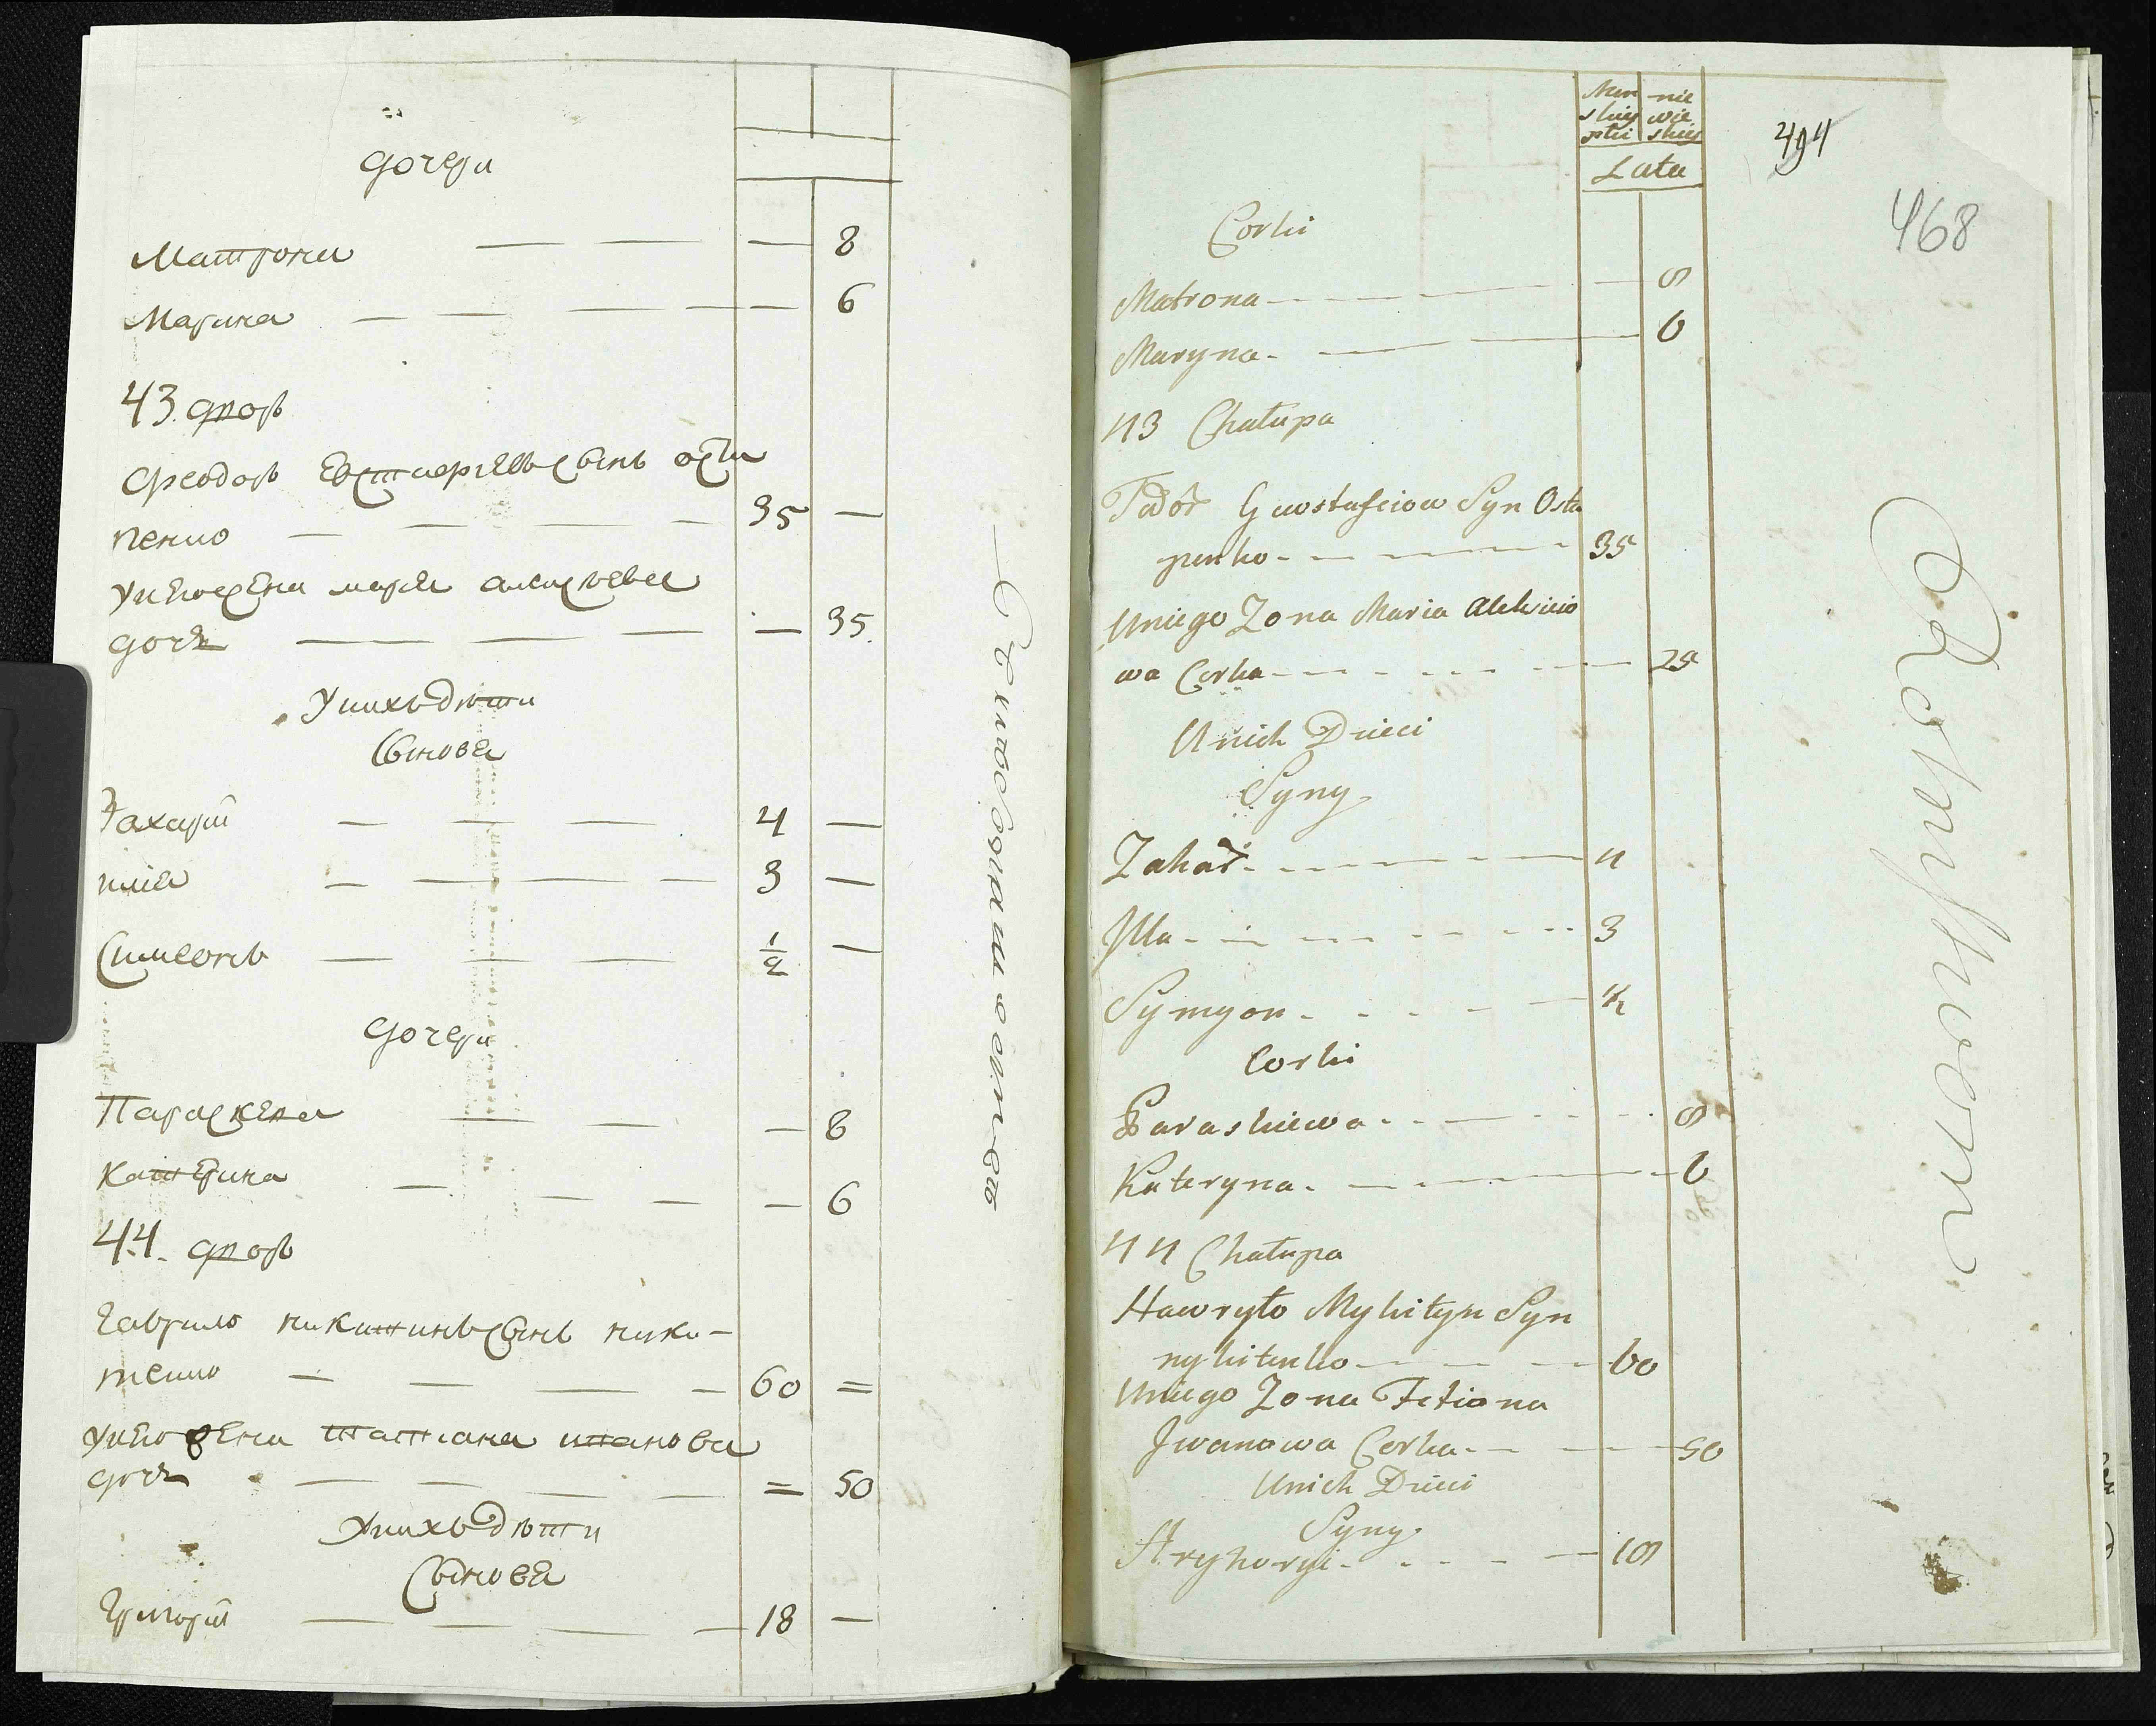 дочери
Матрона — — — — 8
Марина — — — — 6
43. дворъ
Феодоръ Евстафіевъ сынъ оста
пенко — — — — 35 —
у него жена марія алексѣева
дочь — — — — 35.
У нихъ дѣти
Сыновя
Захарій — — — 4 —
илія — — — — 3 —
Симеонъ — — — 1/2 —
дочери
Параскева — — — 8
Катерина — — — — 6
44. дворъ
Гаврило никитинъ сынъ ники-
тенко — — — — 60 =
у него жена татіана иванова
дочь — — — — = 50
У нихъ дѣти
Сыновя
Григорій — — — — 18 —
Men skiey płci
nie wie skiey
Lata
494
468
Corki
Matrona - - - — 8
Maryna - — — 6
43 Chałupa
Fedor Ewstafiow Syn Osta
penko - - - — 35
Uniego Zona Maria Alexieio
wa Corka - - - — 25
Unich Dzieci
Syny
Zahar - - - — 4
Jlla - - - - 3
Symyon - - - — 1/2
Corki
Paraskiewa - - — 8
Kateryna - — — 6
44 Chałupa
Hawryło Mykityn Syn
nykitenko - - — 60
Uniego Zona Tetiana
Jwanowa Corka - - — 50
Unich Dzieci
Syny
Hryhoryi - - - — 18